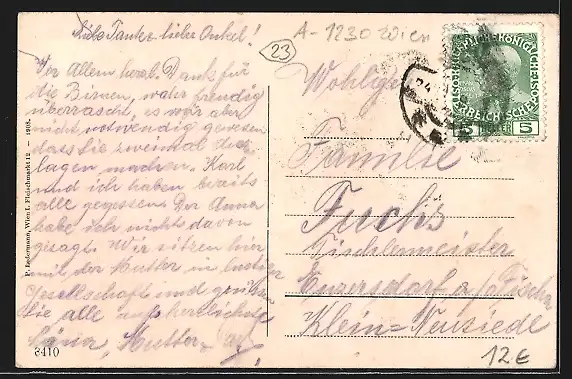 Liebe Tante, lieber Onkel!
Vor Allem herzl. Dank für
die Birnen, waren freudig
überrascht, es wär aber
nicht notwendig gewesen
dass Sie zweimal
machen. Karl
und ich haben bereits
alle gegessen. Der Anna
habe ich nichts davon
gesagt. Wir sitzen hier
mit der Mutter in lustiger
Gesellschaft und grüßen
Sie alle aufs herzlichste
Mutter
P. Ledermann, Wien I. Fleischmarkt 12 1908.
8410
23
A-1230 Wien
Wohlge
Familie
Fuchs
Tischlermeister
Enzersdorf a/d Fischa
Klein-Neusiedl
12€
5 HELLER 5